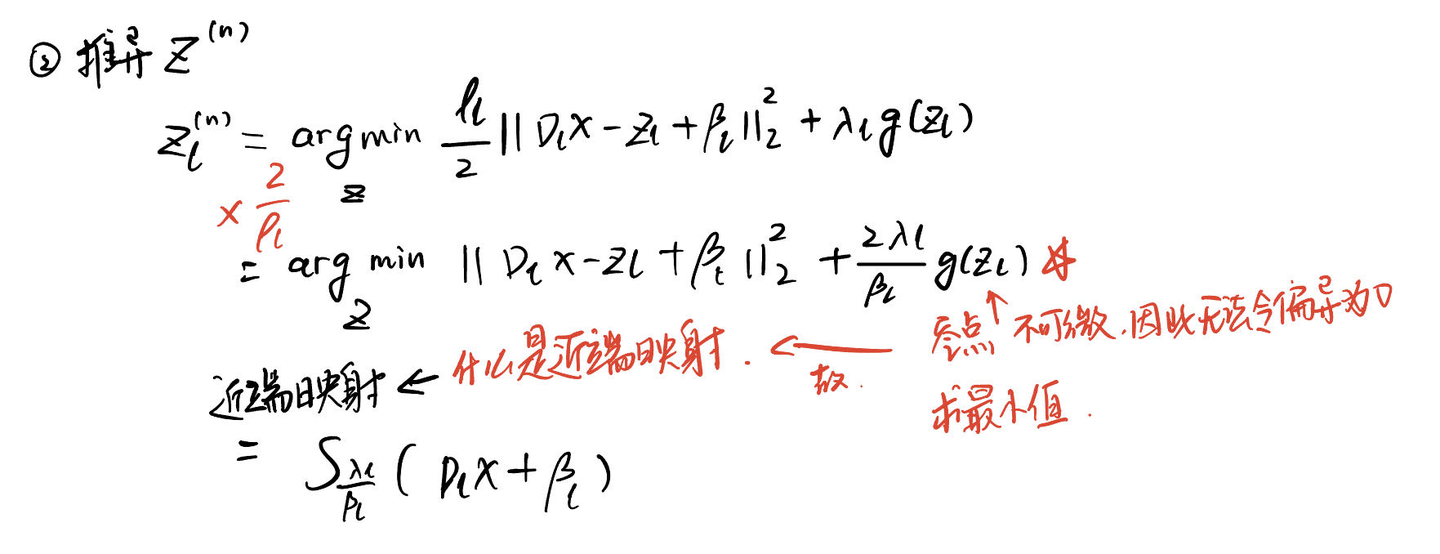 ② 推导 Z^(n)
Z_l^(n) = arg min_Z ρ_l/2 ||D_l x - Z_l + β_l||_2^2 + λ_l g(Z_l)
× 2/ρ_l
= arg min_Z ||D_l x - Z_l + β_l||_2^2 + 2λ_l/ρ_l g(Z_l)
↑ 零点不可微,因此无法令偏导为0
近端映射 ← 什么是近端映射. ← 故.
求最小值.
= S_{λ_l/ρ_l} (D_l x + β_l)